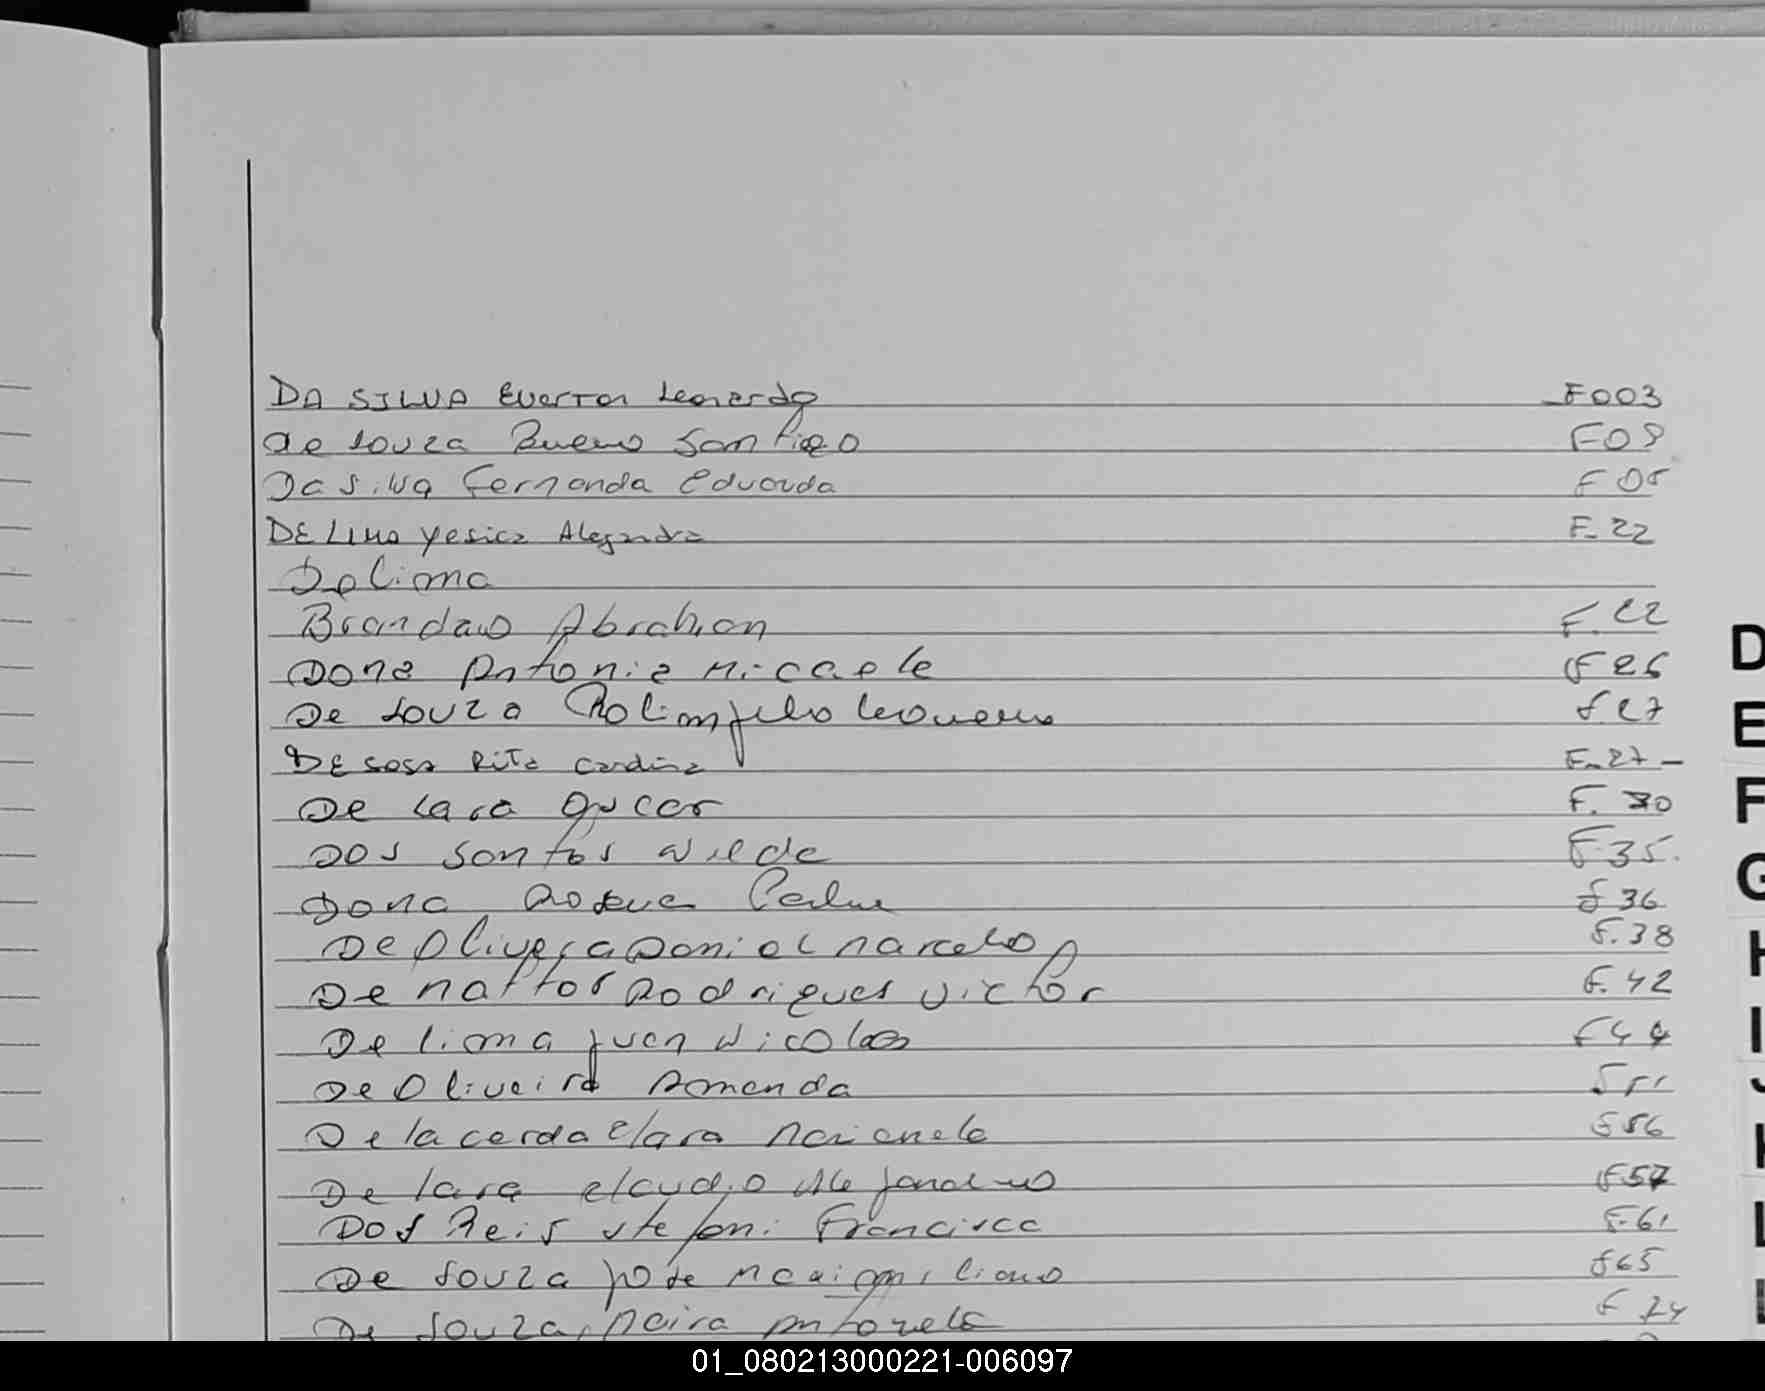 DA SILVA Everton Leonardo F003
de souza Bueno Santiago F09
Da silva Fernanda Eduarda F 05
DE LIMA Yesica Alejandra F. 22
De Lima
Brandao Abrahan F. 22
Dona Antonia Micaele F 26
De souza Leonero F. 27
DE SOSA Rita F. 27 -
De Lara Oscar F. 30
Dos santos Wilde F 35.
Dona Roque F 36
De Olivera Daniel Marcelo F. 38
De Mattos Rodrigues Victor F. 42
De lima Juan Nicolas F 44
De Oliveira Amanda F 51
De la cerda Clara Marianela F 56
De lara Claudio Alejandro F 57
Dos Reis Stefani Francisca F. 61
De souza Jose Maximiliano F 65
De souza, Maira Antonela F 74
D
E
F
G
H
I
J
K
L
01_080213000221-006097